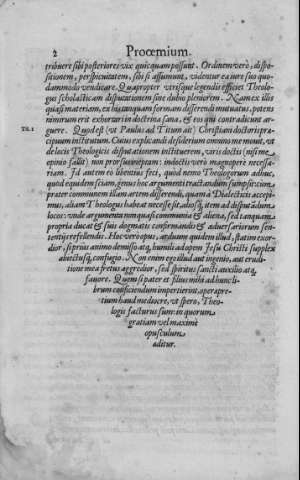 2 Prooemium.
tribuere sibi posteriores vix quicquam possunt. Ordinem verò, dispo-
sitionem, perspicuitatem, sibi si assumunt, videntur ea iure suo quo-
dammodo vendicare. Quapropter vtrisque legendis efficiet Theolo-
gus scholasticam disputationem sine dubio pleniorem. Nam ex illis
quasi materiam, ex his tanquam formam disserendi mutuatus, potens
nimirum erit exhortari in doctrina sana, & eos qui contradicunt ar-
Tit. 1
guere. Quod est (vt Paulus ad Titum ait) Christiani doctoris præ-
cipuum institutum. Cuius explicandi desiderium omnino me mouit, vt
de locis Theologicis disputationem instituerem, variis doctis (nisi me
opinio fallit) non prorsus ineptam: indoctis verò magnopere necessa-
riam. Id autem eo libentius feci, quòd nemo Theologorum adhuc,
quod equidem sciam, genus hoc argumenti tractandum sumpsit: cùm
præter communem illam artem disserendi, quam à Dialecticis accepi-
mus, aliam Theologus habeat necesse sit, aliosq; item ad disputandum
locos: vnde argumenta non quasi communia & aliena, sed tanquam
propria ducat & suis dogmatis confirmandis & aduersariorum sen-
tentijs refellendis. Hoc verò opus, arduum quidem illud, statim exor-
dior, sed prius animo demisso atq; humili ad opem Jesu Christi supplex
abiectusq; confugio. Non enim ego illud aut ingenio, aut erudi-
tione mea fretus aggredior, sed spiritus sancti auxilio atq;
fauore. Quem si pater & filius mihi ad hunc li-
brum conficiendum impertierint, operæ pre-
tium haud mediocre, vt spero, Theo-
logis facturus sum: in quorum
gratiam vel maximè
opusculum
æditur.